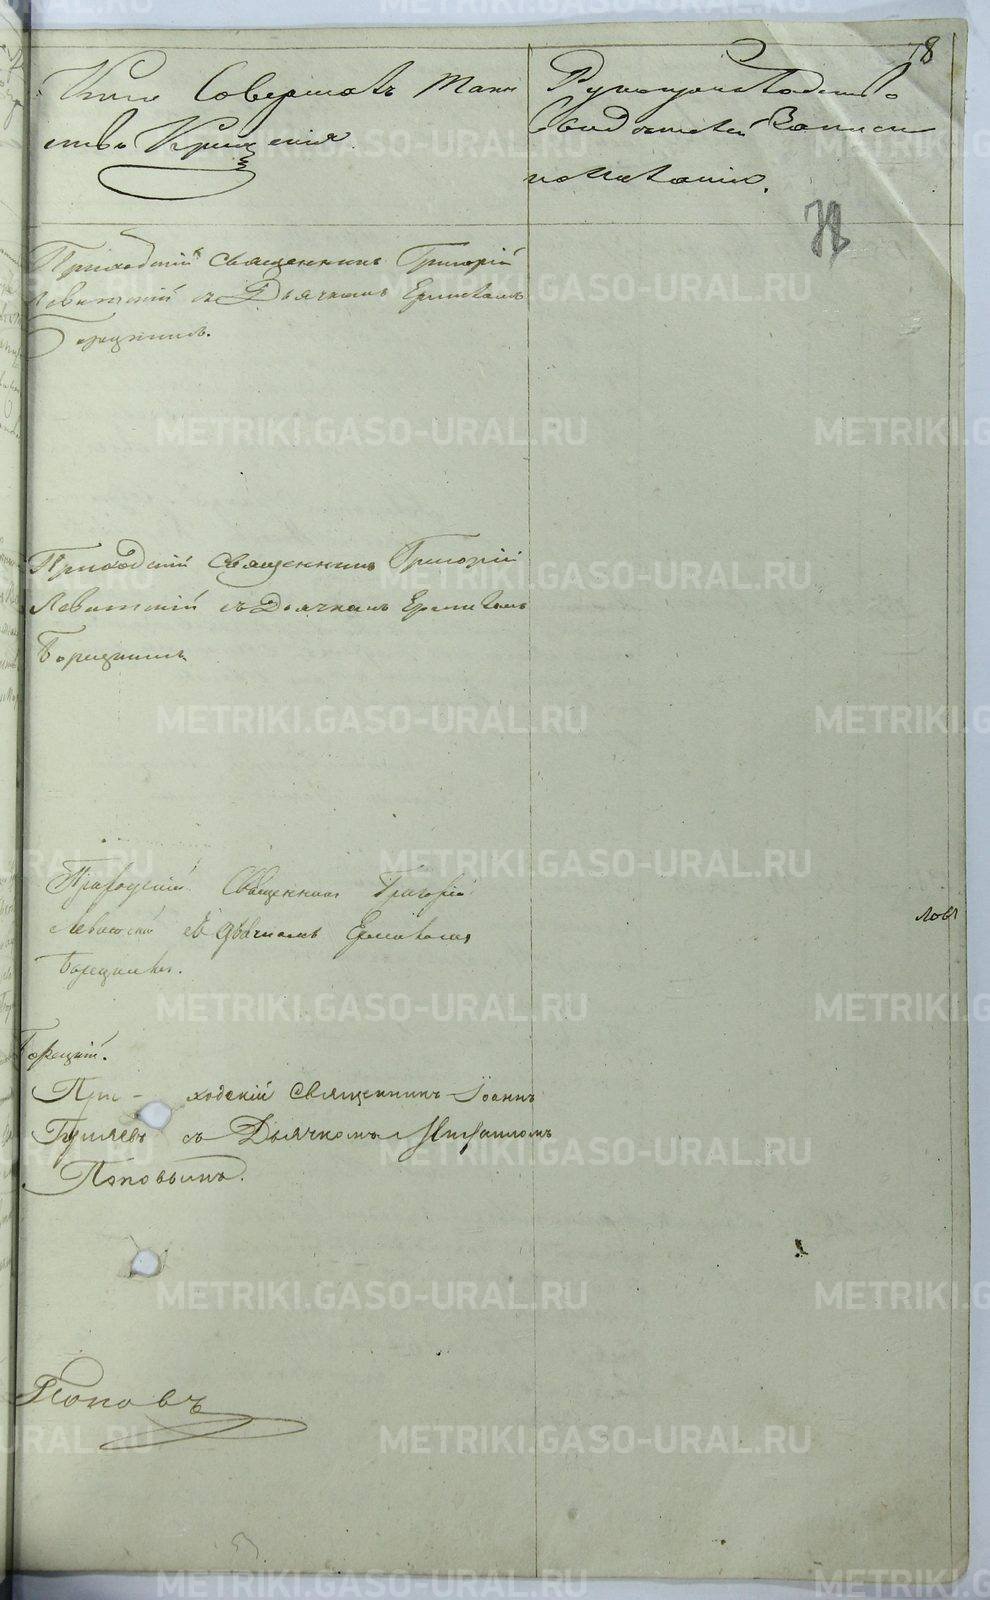 78
Кто Совершалъ Таин
ство Крещенія.
Рукоприкладство
Свидетелей Записи
по желанію.
78
Приходскій священникъ Григорій
Левитскій съ Дьячкомъ Ермиломъ
Борецкимъ.
Приходскій священникъ Григорій
Левитскій съ Дьячкомъ Ермиломъ
Борецкимъ
Приходскій Священникъ Григорій
Левитскій съ дьячкомъ
Борецкимъ.
Борецкій.
При- ходскій священникъ Іоаннъ
съ Дьячкомъ Михаиломъ
Поповымъ.
Поповъ
METRIKI.GASO-URAL.RU